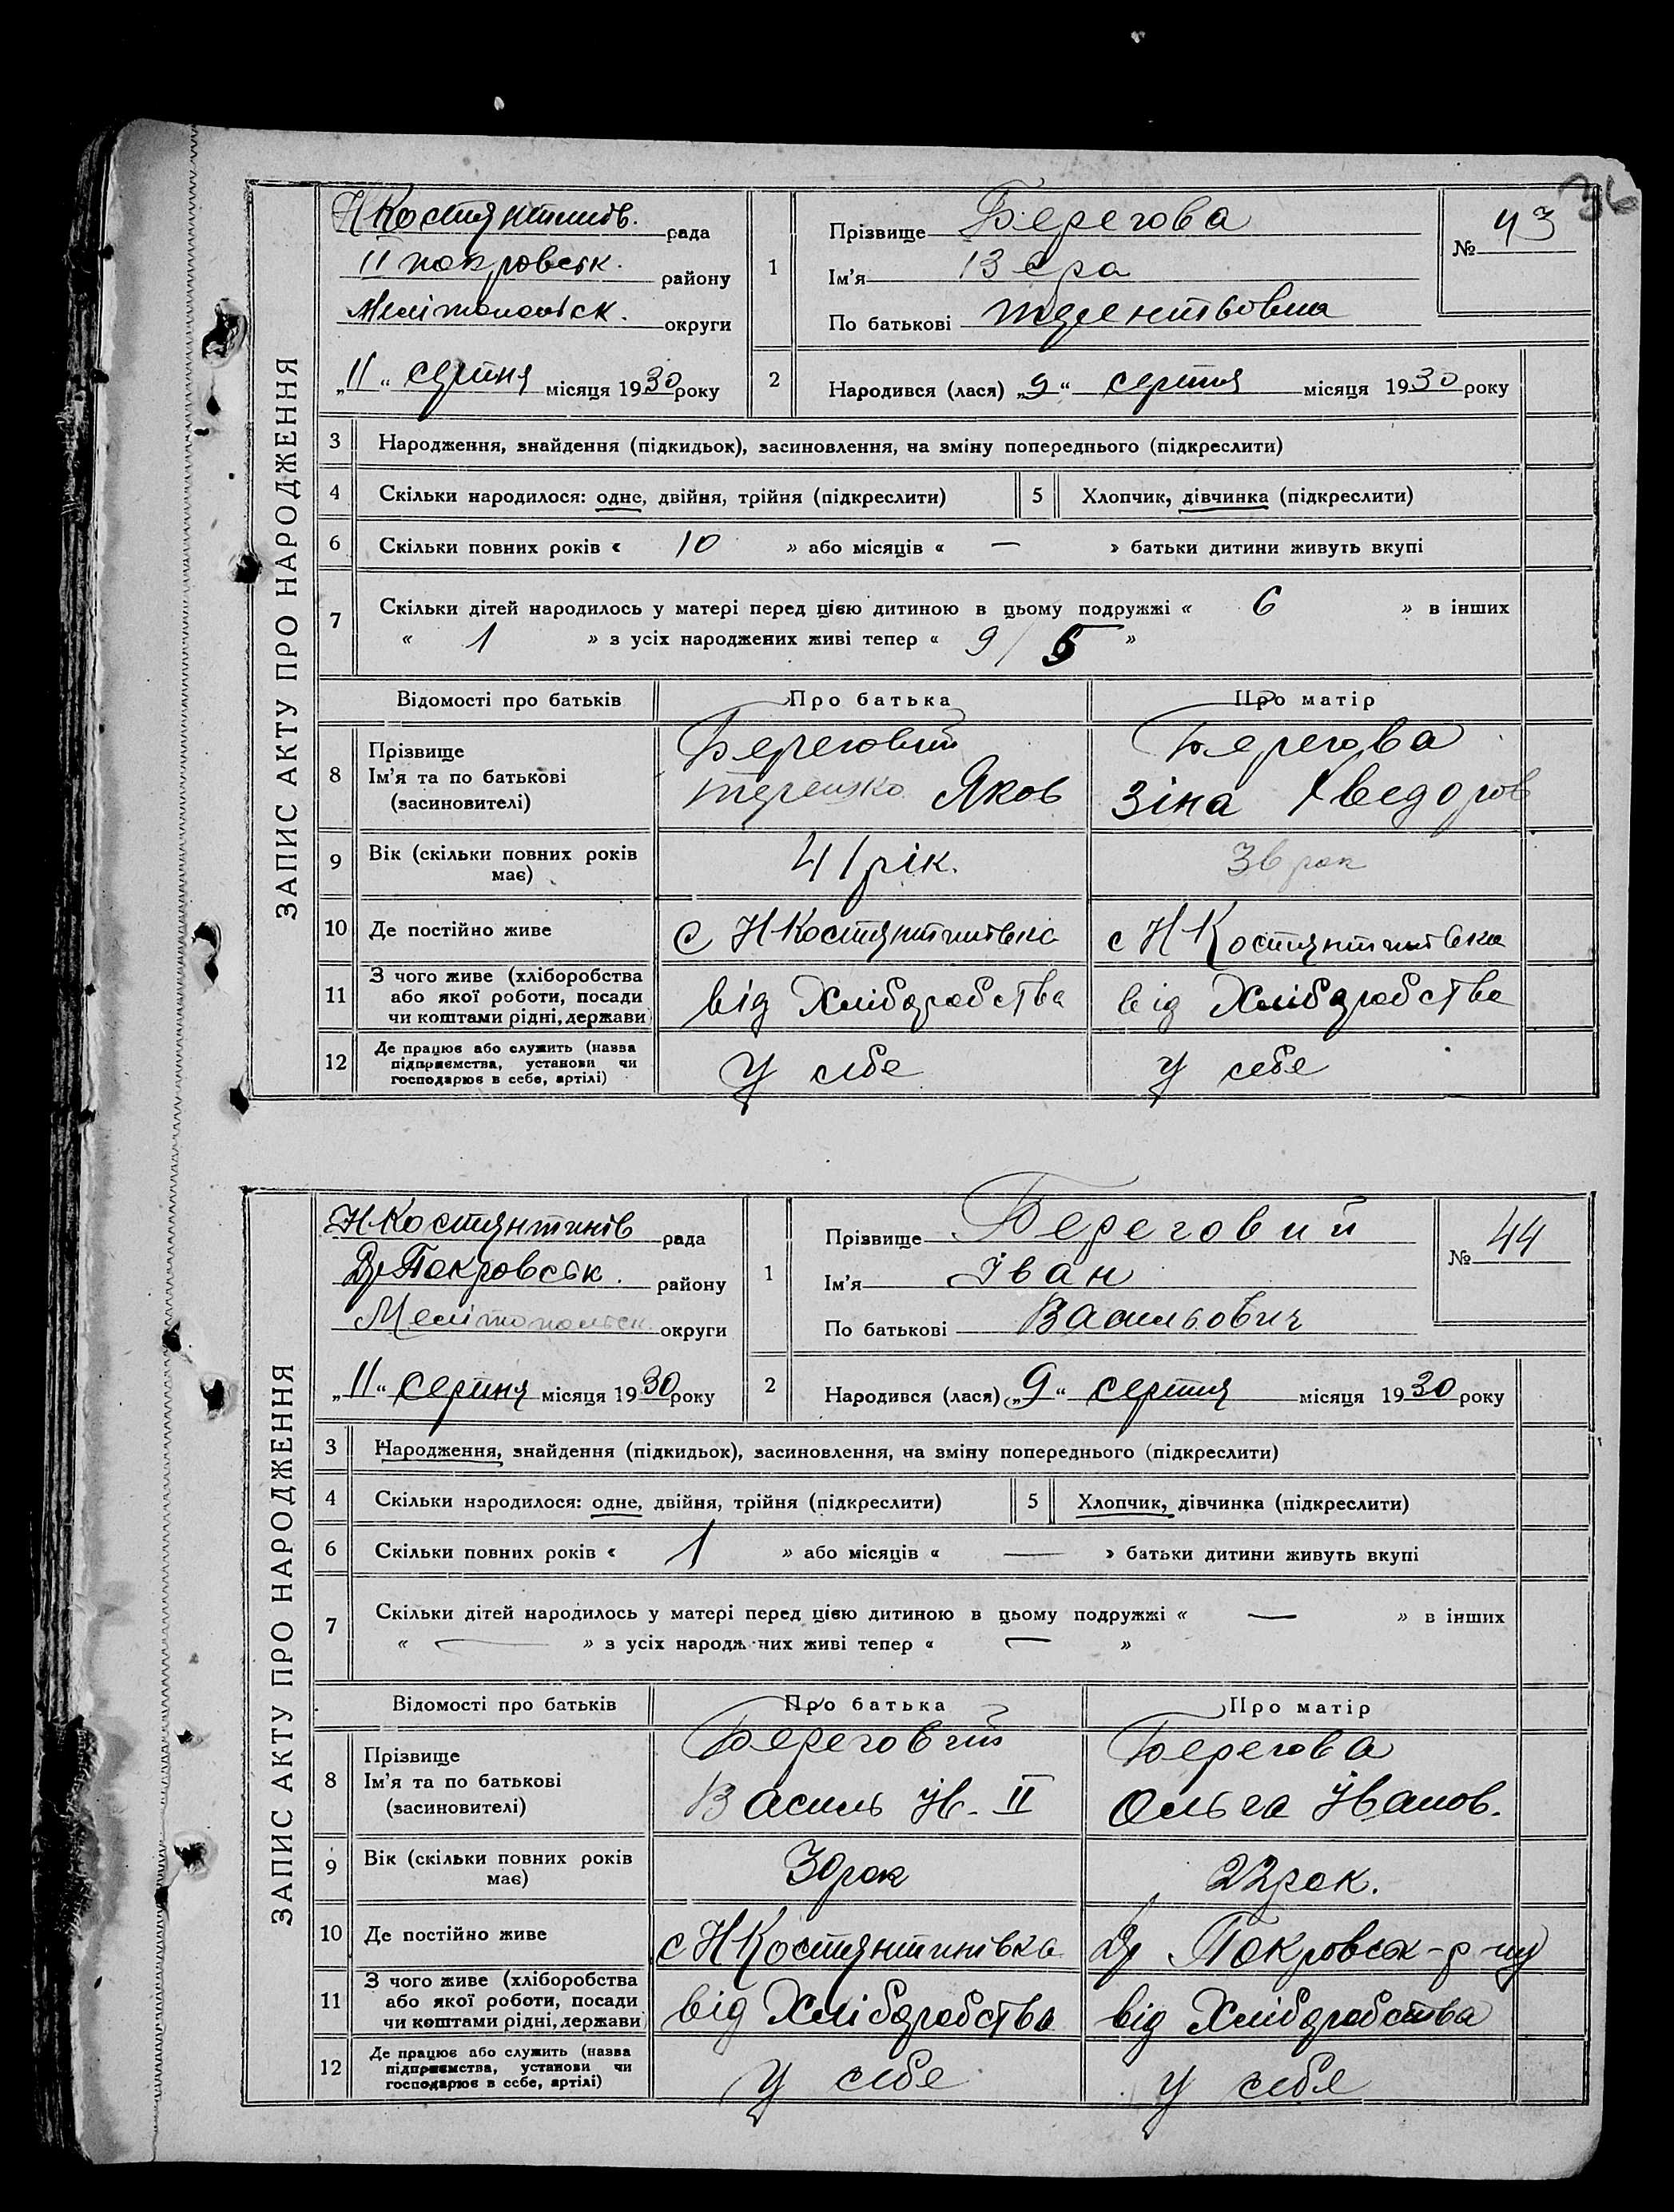 36
ЗАПИС АКТУ ПРО НАРОДЖЕННЯ
Н Костянтинів. рада
II покровськ. району
Мелітопольск. округи
„11“ серпня місяця 1930 року
1
Прізвище Берегова
Ім'я Вєра
По батькові
№ 43
2
Народився (лася) „9“ серпня місяця 1930 року
3 Народження, знайдення (підкидьок), засиновлення, на зміну попереднього (підкреслити)
4 Скільки народилося: одне, двійня, трійня (підкреслити) 5 Хлопчик, дівчинка (підкреслити)
6 Скільки повних років « 10 » або місяців « — » батьки дитини живуть вкупі
7 Скільки дітей народилось у матері перед цією дитиною в цьому подружжі « 6 » в інших
« 1 » з усіх народжених живі тепер « 9/5 »
Відомості про батьків Про батька Про матір
8 Прізвище Береговий Берегова
Ім'я та по батькові Терешко Яков Зіна Хведоров
(засиновителі)
9 Вік (скільки повних років має) 41 рік. 36 рок
10 Де постійно живе с Н Костянтинівка с Н Костянтинівка
11 З чого живе (хліборобства або якої роботи, посади чи коштами рідні, держави) від Хліборобства від Хліборобства
12 Де працює або служить (назва підприємства, установи чи господарює в себе, артілі) у себе у себе
ЗАПИС АКТУ ПРО НАРОДЖЕННЯ
Н Костянтинів рада
Др Покровськ. району
Мелітопольск. округи
„11“ серпня місяця 1930 року
1
Прізвище Береговий
Ім'я Іван
По батькові Васильович
№ 44
2
Народився (лася) „9“ серпня місяця 1930 року
3 Народження, знайдення (підкидьок), засиновлення, на зміну попереднього (підкреслити)
4 Скільки народилося: одне, двійня, трійня (підкреслити) 5 Хлопчик, дівчинка (підкреслити)
6 Скільки повних років « 1 » або місяців « — » батьки дитини живуть вкупі
7 Скільки дітей народилось у матері перед цією дитиною в цьому подружжі « — » в інших
« — » з усіх народжених живі тепер « — »
Відомості про батьків Про батька Про матір
8 Прізвище Береговий Берегова
Ім'я та по батькові Василь Ів. II Ольга Іванов.
(засиновителі)
9 Вік (скільки повних років має) 30 рок 22 рок.
10 Де постійно живе с Н Костянтинівка Др Покровськ-р-ну
11 З чого живе (хліборобства або якої роботи, посади чи коштами рідні, держави) від Хліборобства від Хліборобства
12 Де працює або служить (назва підприємства, установи чи господарює в себе, артілі) у себе у себе